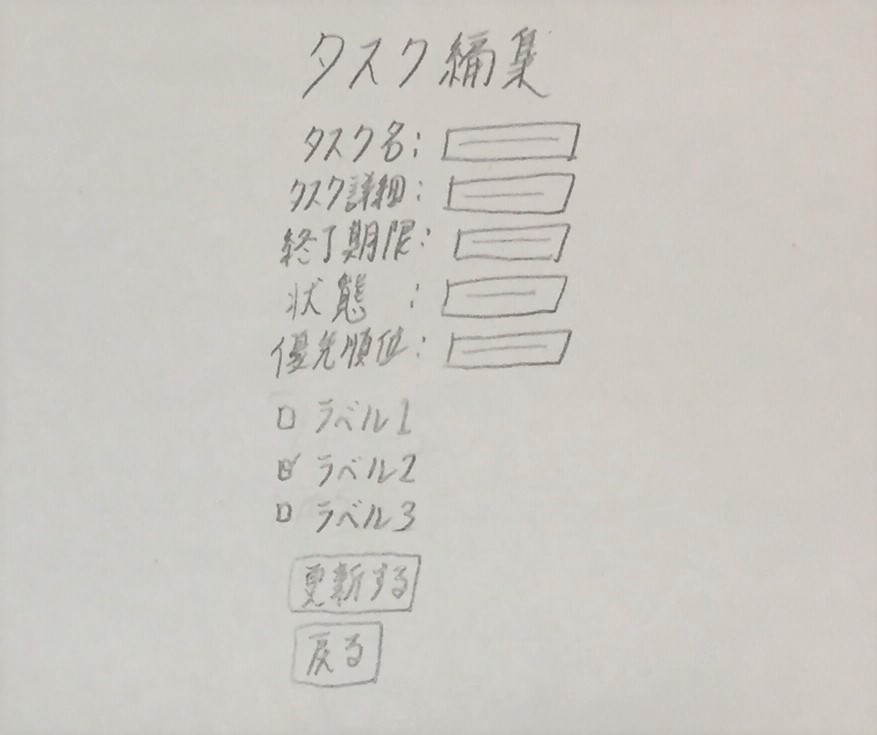 タスク編集
タスク名:
タスク詳細:
終了期限:
状態 :
優先順位:
ラベル1
ラベル2
ラベル3
更新する
戻る